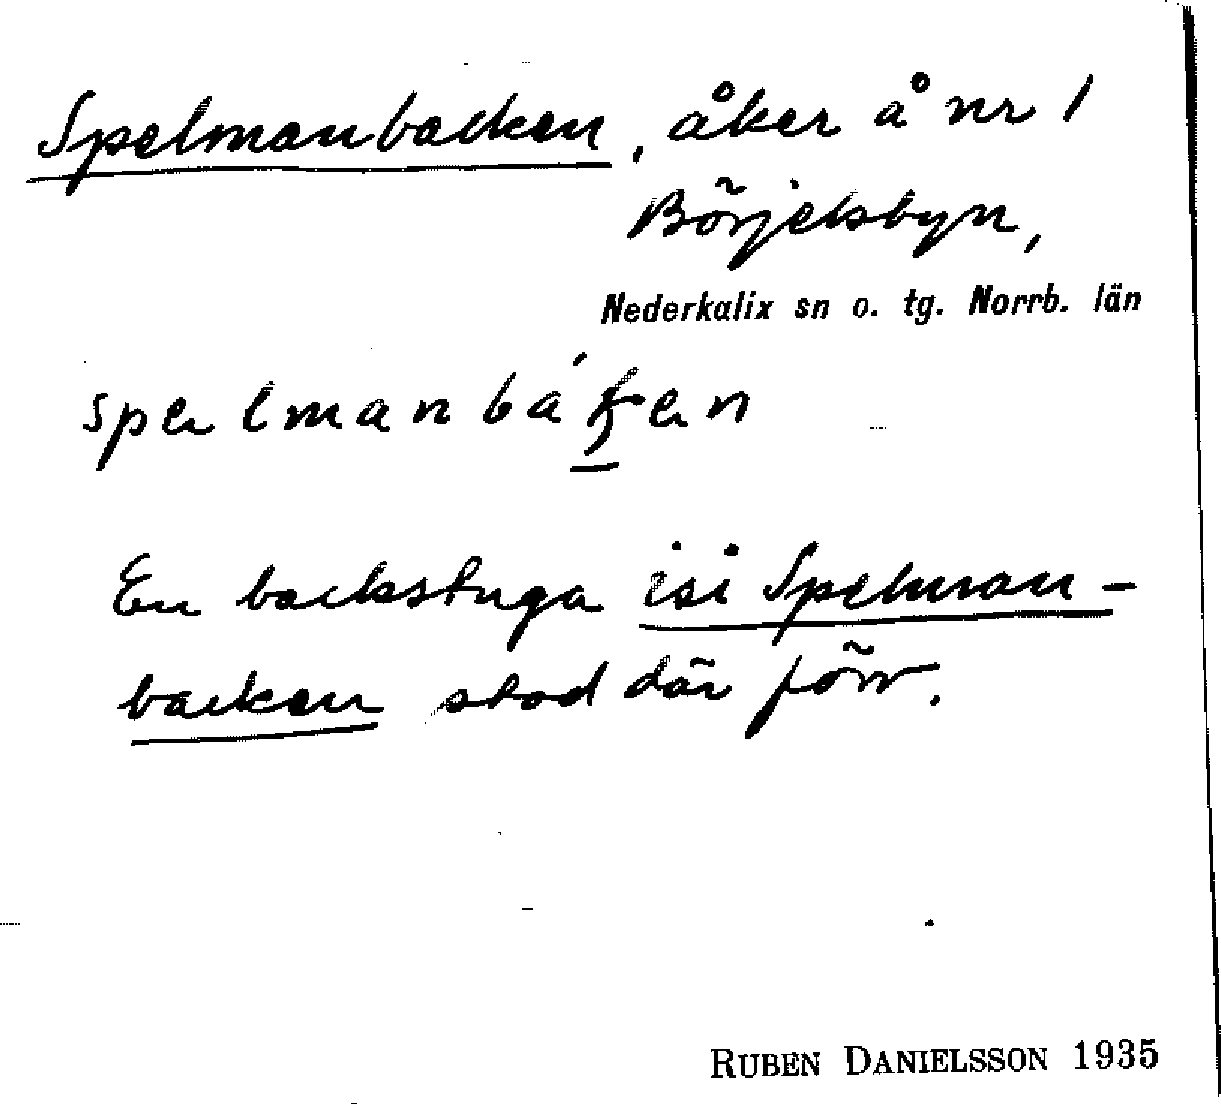 Spelmanbacken, åker å nr 1
Börjelsbyn,
Nederkalix sn o. tg. Norrb. län
En backstuga isi Spelman-
backen stod där förr.
RUBEN DANIELSSON 1935